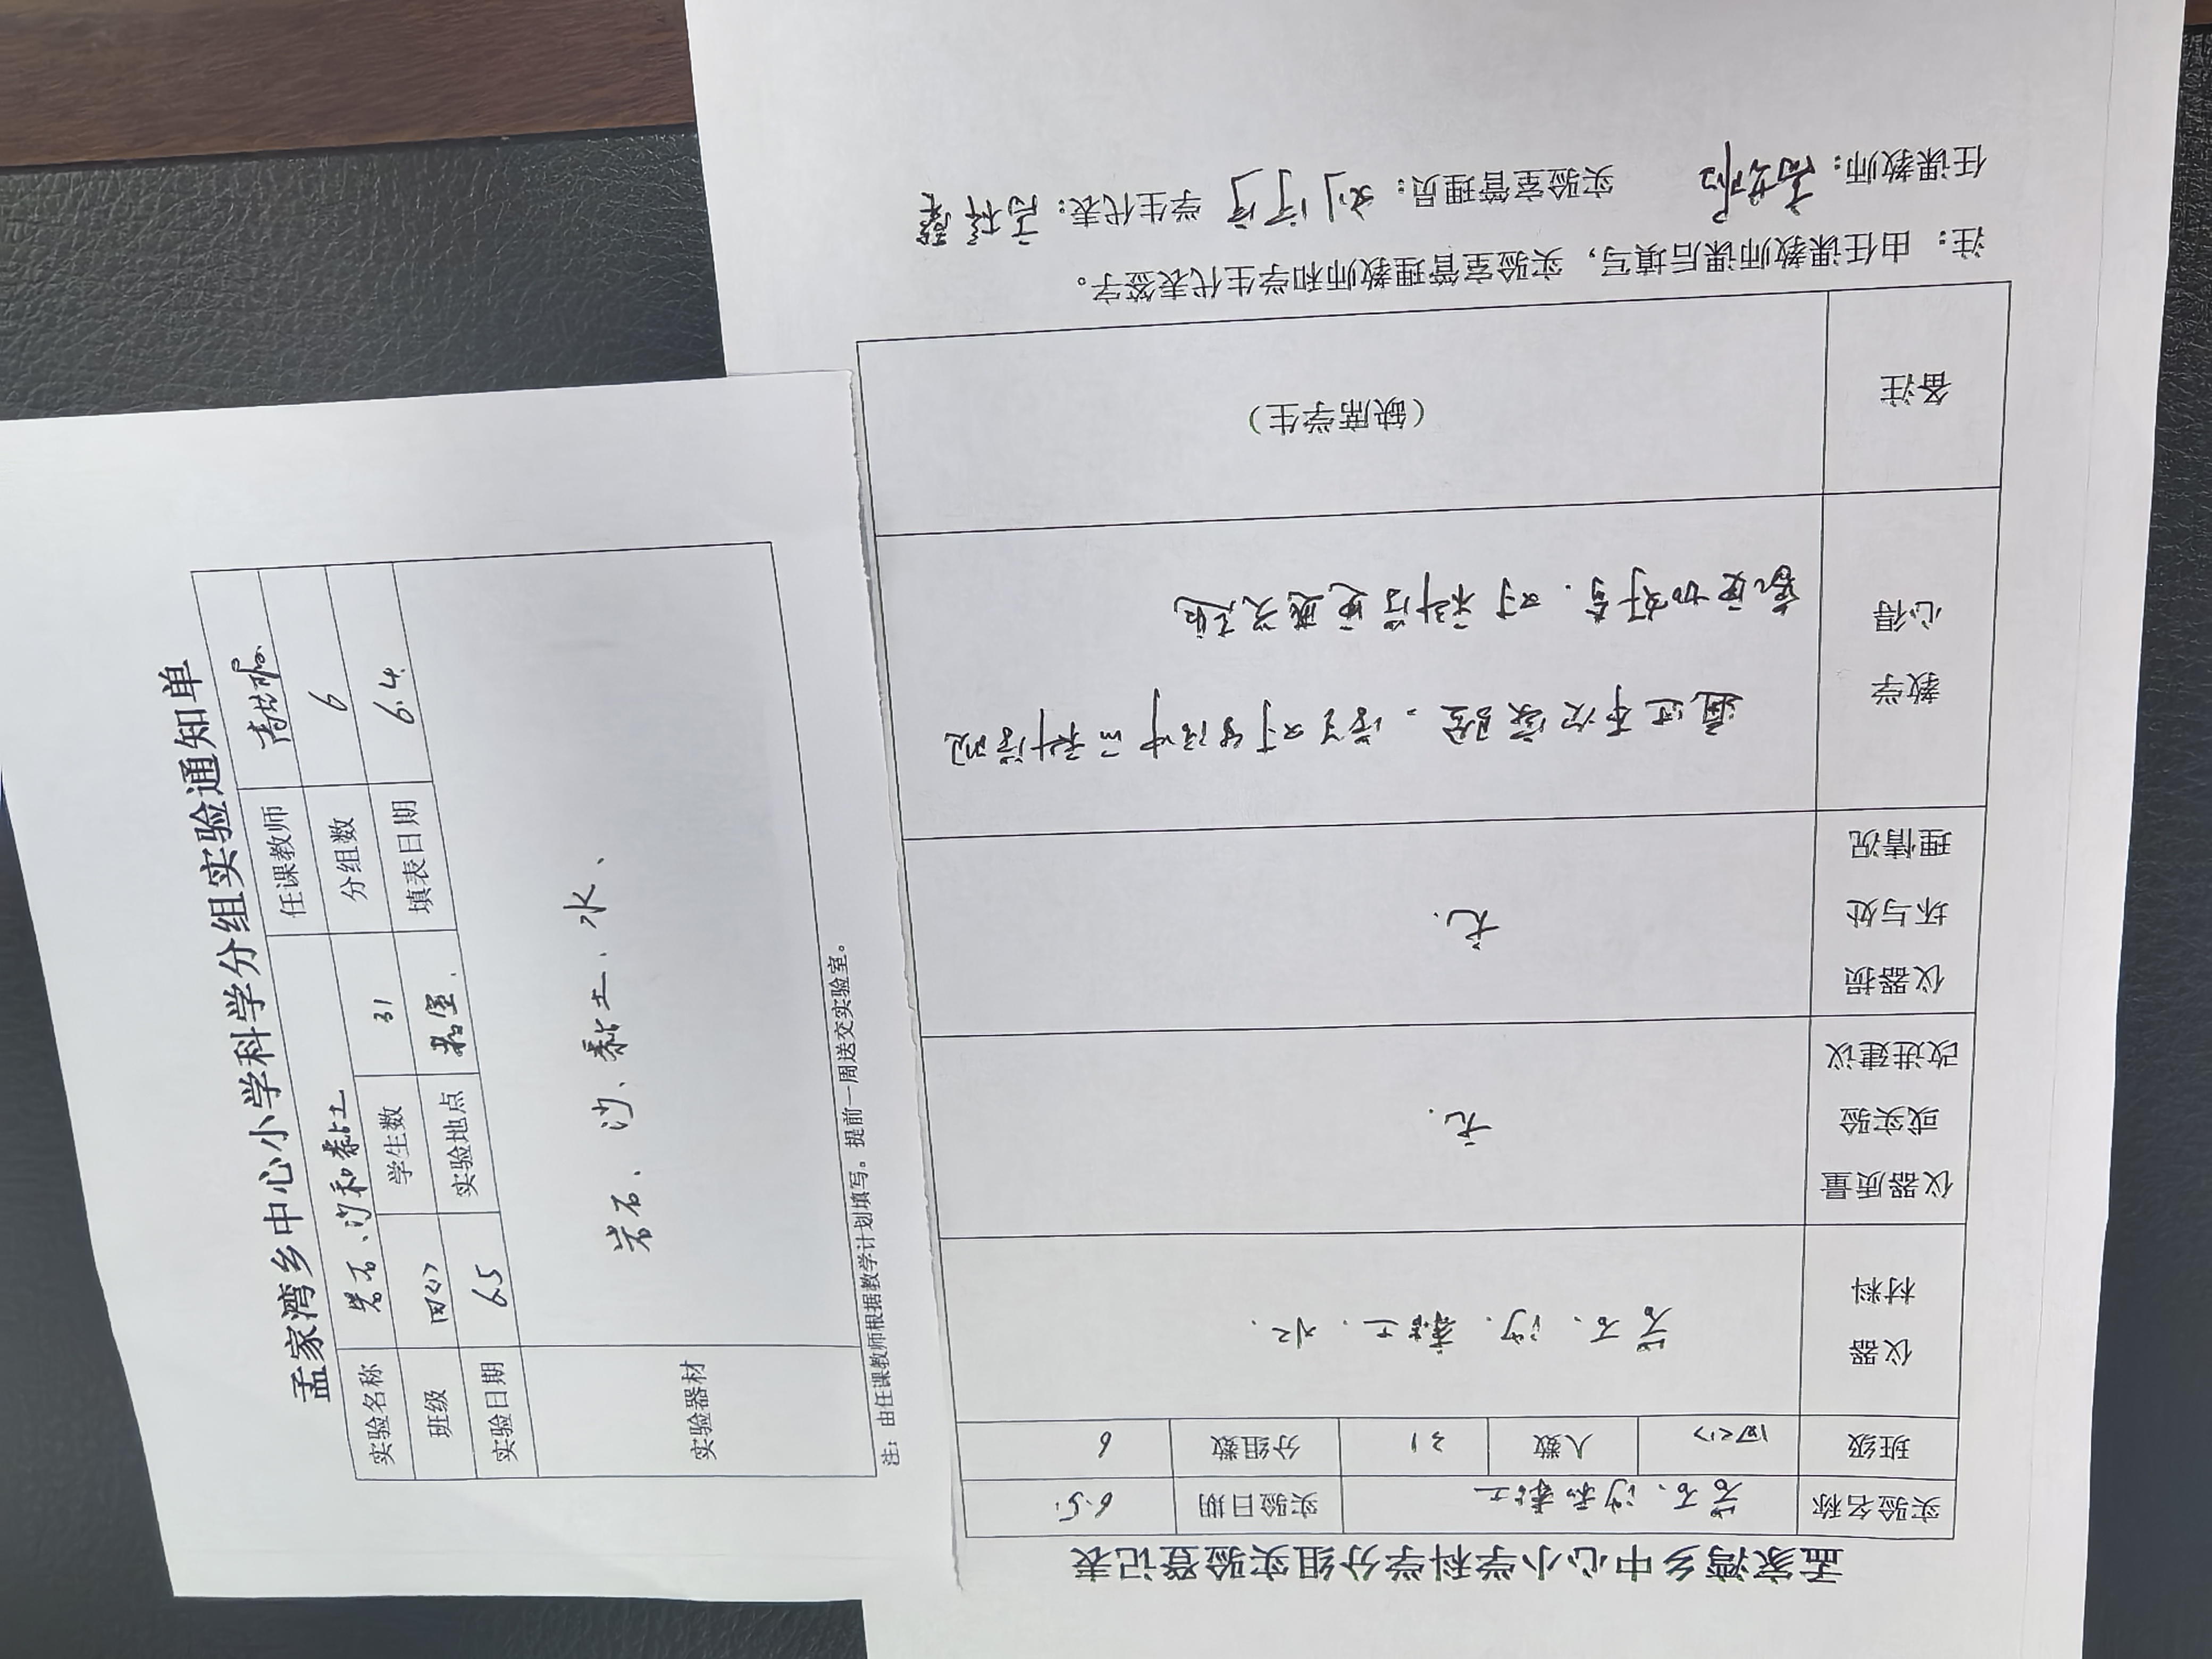 孟家湾乡中心小学科学分组实验通知单
实验名称 岩石、沙和黏土 任课教师
班级 四(1) 学生数 31 分组数 6
实验日期 6.5 实验地点 填表日期 6.4.
实验器材 岩石、沙、黏土、水、
注：由任课教师根据教学计划填写。提前一周送交实验室。
孟家湾乡中心小学科学分组实验登记表
实验名称 岩石、沙和黏土 实验日期 6.5.
班级 四(1) 人数 31 分组数 6
仪器
材料
岩石、沙、黏土、水、
仪器质量
或实验
改进建议
无.
仪器损
坏与处
理情况
无.
教学
心得
通过本次实验，学生对生活中的科学现
象更加好奇、对科学更感兴趣
备注
(缺席学生)
注：由任课教师课后填写，实验室管理教师和学生代表签字。
任课教师： 实验室管理员： 学生代表：